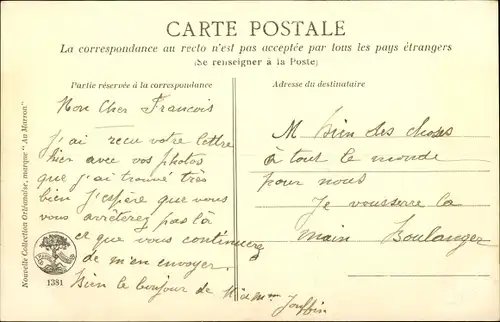 CARTE POSTALE
La correspondance au recto n'est pas acceptée par tous les pays étrangers
(Se renseigner à la Poste)
Partie réservée à la correspondance
Mon Cher Francois
J'ai recu votre lettre
hier avec vos photos
que j'ai trouvé très
bien J'espère que vous
vous arrêterez pas là
et que vous continuerez
de m'en envoyer.
Bien le bonjour de M et Mme Jouffin
Adresse du destinataire
M Bien des choses
à tout le monde
pour nous
Je vous serre la
main Boulanger
Nouvelle Collection Orléanaise, marque "Au Marron"
1381